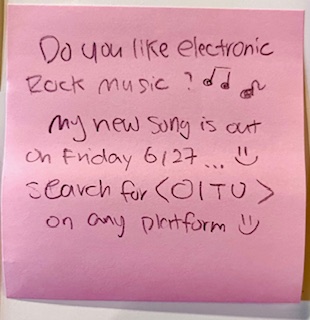 Do you like electronic
Rock music ? ♫ ♪
My new song is out
on Friday 6/27... :)
search for <OITU>
on any platform :)